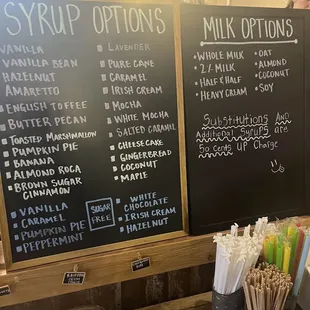 SYRUP OPTIONS
VANILLA
VANILLA BEAN
HAZELNUT
AMARETTO
ENGLISH TOFFEE
BUTTER PECAN
TOASTED MARSHMALLOW
PUMPKIN PIE
BANANA
ALMOND ROCA
BROWN SUGAR
CINNAMON
LAVENDER
PURE CANE
CARAMEL
IRISH CREAM
MOCHA
WHITE MOCHA
SALTED CARAMEL
CHEESECAKE
GINGERBREAD
COCONUT
MAPLE
VANILLA
CARAMEL
PUMPKIN PIE
PEPPERMINT
SUGAR
FREE
WHITE
CHOCOLATE
IRISH CREAM
HAZELNUT
MILK OPTIONS
WHOLE MILK
2% MILK
HALF & HALF
HEAVY CREAM
OAT
ALMOND
COCONUT
SOY
Substitutions AND
Additional Syrups are
50 cents UP Charge